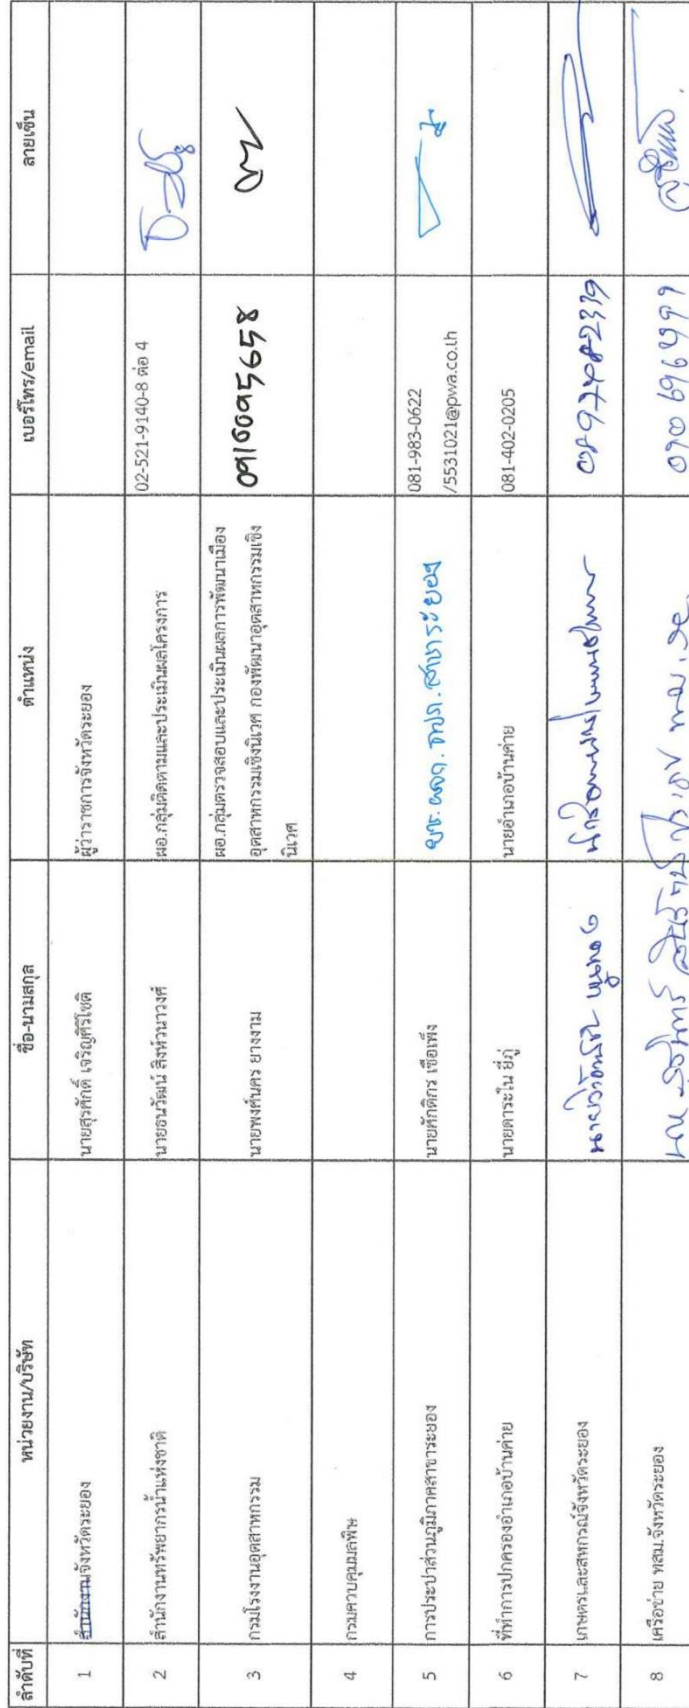 ลำดับที่ หน่วยงาน/บริษัท ชื่อ-นามสกุล ตำแหน่ง เบอร์โทร/email ลายเซ็น
1 สำนักงานจังหวัดระยอง นายสุรศักดิ์ เจริญศิริโชติ ผู้ว่าราชการจังหวัดระยอง
2 สำนักงานทรัพยากรน้ำแห่งชาติ นายธนวัฒน์ สิงห์วนาวงศ์ ผอ.กลุ่มติดตามและประเมินผลโครงการ 02-521-9140-8 ต่อ 4
3 กรมโรงงานอุตสาหกรรม นายพงศ์นคร ยางงาม ผอ.กลุ่มตรวจสอบและประเมินผลการพัฒนาเมือง 0916095658
อุตสาหกรรมเชิงนิเวศ กองพัฒนาอุตสาหกรรมเชิง
นิเวศ
4 กรมควบคุมมลพิษ
5 การประปาส่วนภูมิภาคสาขาระยอง นายศักดิกร เชื้อเพ็ง กปภ.สาขาระยอง 081-983-0622
/5531021@pwa.co.th
6 ที่ทำการปกครองอำเภอบ้านค่าย นายดาระใน ยี่ภู่ นายอำเภอบ้านค่าย 081-402-0205
7 เกษตรและสหกรณ์จังหวัดระยอง
8 เครือข่าย ทสม.จังหวัดระยอง